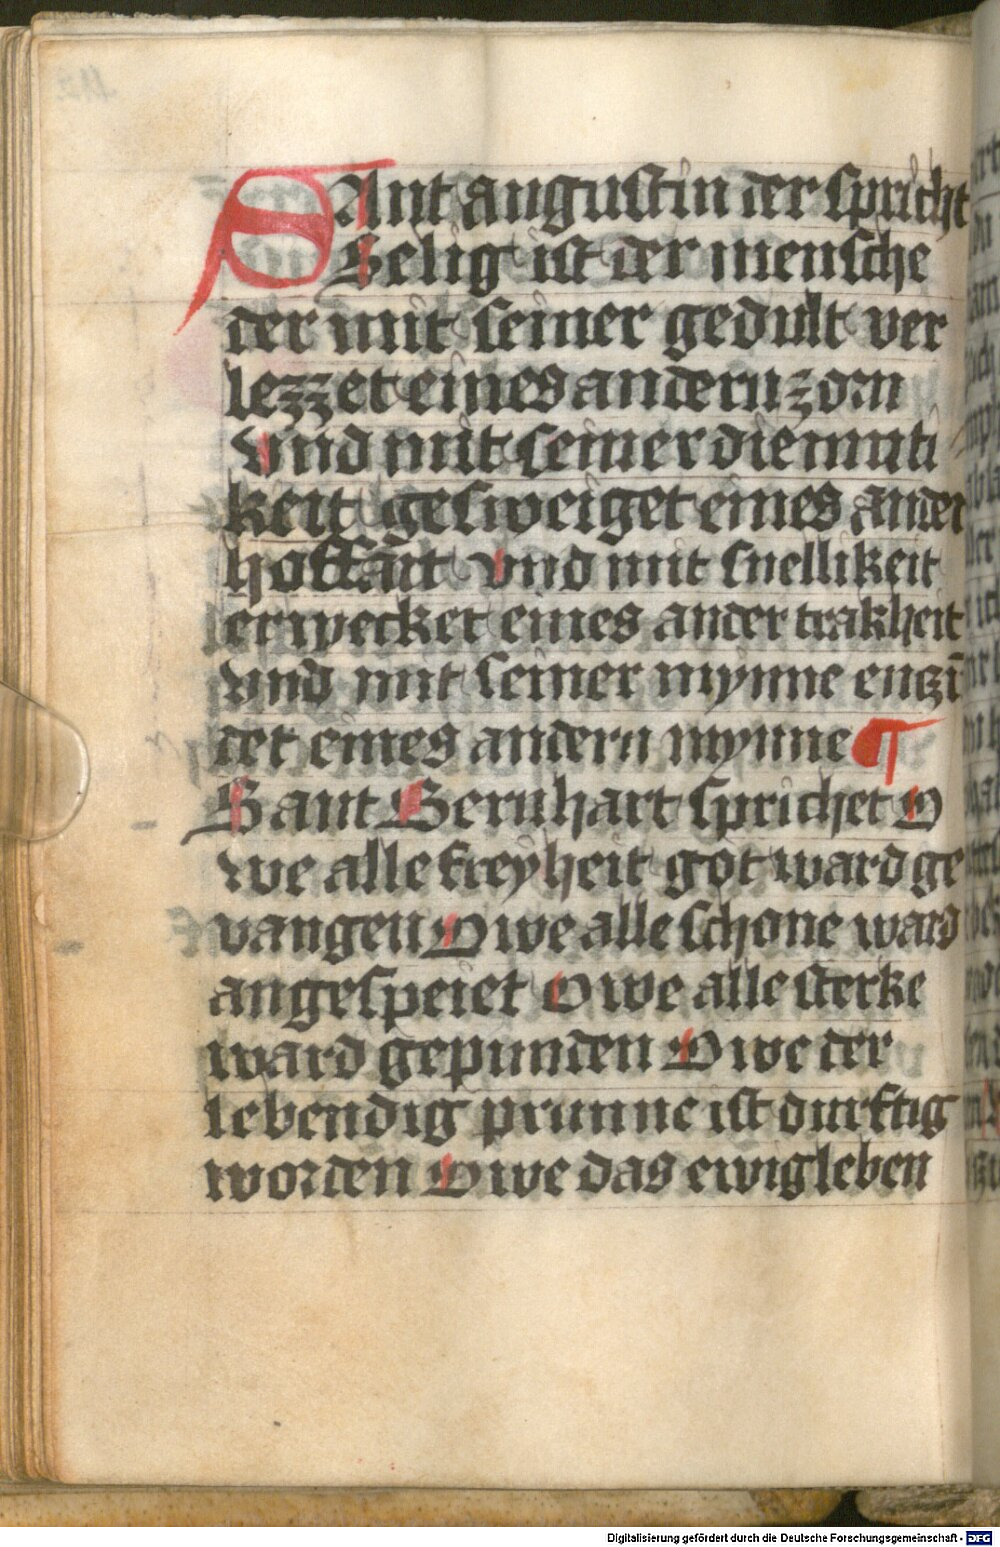 SAnt augustin der spricht
Selig ist der mensche
der mit seiner gedult ver
lezzet eines andern zorn
vnd mit seiner diemuti
keit gesweiget eines ander
hoffart vnd mit snellikeit
erwecket eines ander trakheit
vnd mit seiner mynne enczī
det eines andern mynne ¶
Sant Bernhart sprichet O
we alle freyheit got ward ge
vangen O we alle schone ward
angespeiet O we alle sterke
ward gepunden O we der
lebendig prunne ist durftig
worden O we das ewig leben
Digitalisierung gefördert durch die Deutsche Forschungsgemeinschaft - DFG